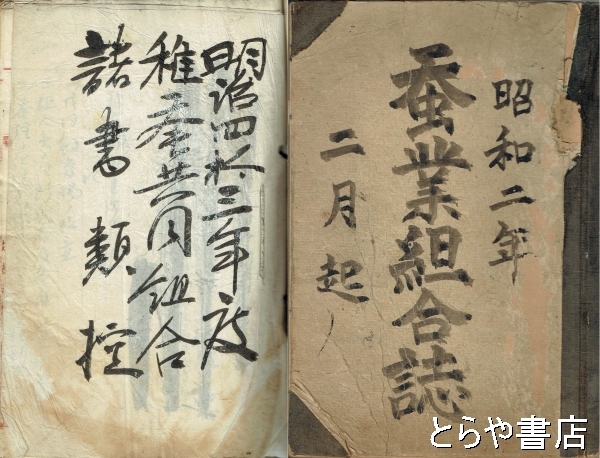 明治四拾三年度
稚蚕共同組合
諸書類控
昭和二年
蚕業組合誌
二月起
とらや書店